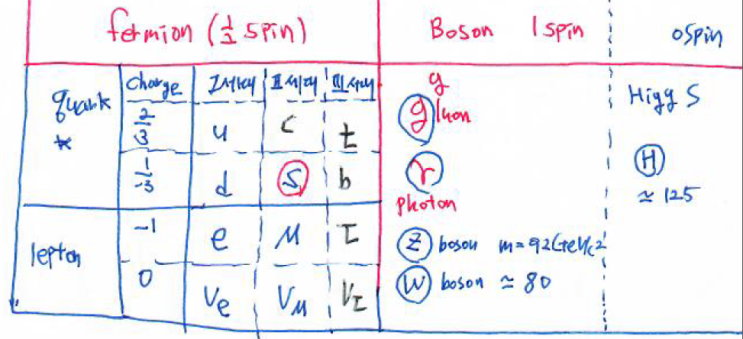 fermion (1/2 spin) Boson 1 spin 0 spin
charge I세대 II세대 III세대
quark 2/3 u c t
1/-3 d s b
lepton -1 e μ τ
0 νe νμ ντ
g
g luon
γ
photon
Z boson m=92GeV/c2
W boson ≃ 80
Higgs
H
≃ 125